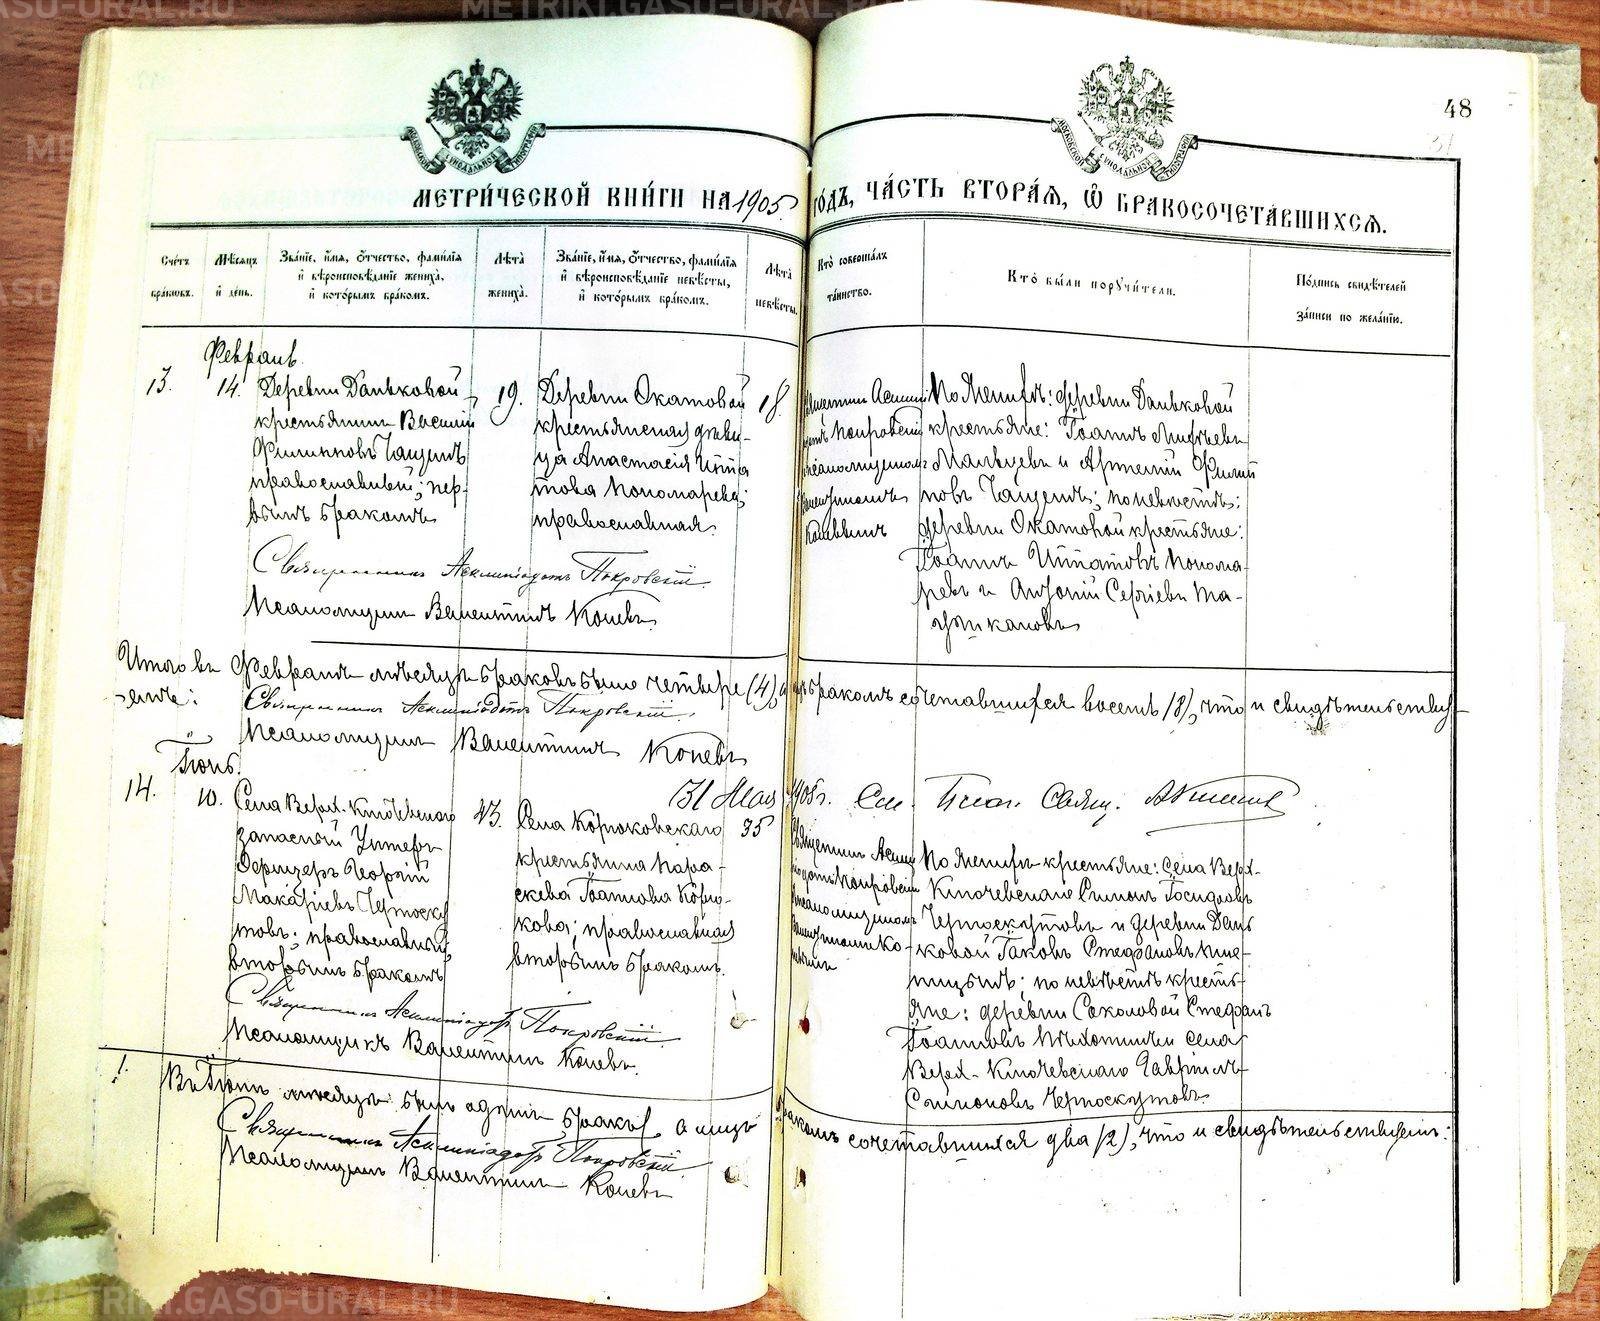 METRIKI.GASO-URAL.RU
48
МОСКОВСКОЙ СѴНОДАЛЬНОЙ ТИПОГРАФІИ
МОСКОВСКОЙ СѴНОДАЛЬНОЙ ТИПОГРАФІИ
МЕТРИ́ЧЕСКОЙ КНИ́ГИ НА 1905 ГО́ДЪ, ЧА́СТЬ ВТОРА́Я, Ѽ БРАКОСОЧЕТА́ВШИХСЯ.
Счетъ браковъ.
Мѣсяцъ и день.
Зва́ніе, и́мя, ѻтчество, фами́лія и вѣроисповѣ́даніе жениха́, и кото́рымъ бра́комъ.
Лѣта̀ жениха̀.
Зва́ніе, и́мя, ѻтчество, фами́лія и вѣроисповѣ́даніе невѣ́сты, и кото́рымъ бра́комъ.
Лѣта̀ невѣсты.
Кто̀ соверша́лъ та́инство.
Кто̀ бы́ли порꙋчи́тели.
По́дпись свидѣ́телей за́писи по жела́нію.
Февраль
13.
14.
Деревни Даньковой
крестьянинъ Василій
Филипповъ Чащинъ
православный; пер-
вымъ бракомъ
19.
Деревни Окатовой
крестьянская дѣви-
ца Анастасія Ипа
това Пономарева;
православная.
18.
Покровскій
Коневымъ
По женихѣ: деревни Даньковой
крестьяне: Іоаннъ
Мальцевъ и Артемій Филип
повъ Чащинъ; по невѣстѣ:
деревни Окатовой крестьяне:
Іоаннъ Ипатовъ Понома-
ревъ и Антоній Сергіевъ Та-
Священникъ Асклипіодотъ Покровскій.
Псаломщикъ Валентинъ Коневъ.
Итого въ Февралѣ мѣсяцѣ браковъ было четыре (4), а бракомъ сочетавшихся восемь (8), что и свидѣтельству-
емъ:
Священникъ Асклипіодотъ Покровскій.
Псаломщикъ Валентинъ Коневъ
Іюнь.
31 Мая 1905 г. Благ. Свящ.
14.
10.
Села Верх-Ключевскаго
запасный Унтеръ
Офицеръ Георгій
Макаріевъ Черноску
товъ; православный,
вторымъ бракомъ
43.
Села Корюковскаго
крестьянка Пара-
скева Іоаннова Корю-
кова; православная
вторымъ бракомъ.
35
Священникъ Аскли
піодотъ Покровскій
псаломщикомъ
Валентиномъ Ко-
невымъ
По женихѣ крестьяне: села Верх-
Ключевскаго Симонъ Іосифовъ
Черноскутовъ и деревни Дань
ковой Іаковъ Стефановъ
по невѣстѣ кресть-
яне: деревни Соколовой Стефанъ
Іоанновъ Пѣхотинъ и села
Верх-Ключевскаго Гавріилъ
Симоновъ Черноскутовъ.
Священникъ Асклипіодотъ Покровскій.
Псаломщикъ Валентинъ Коневъ.
1.
Въ Іюнѣ мѣсяцѣ былъ одинъ бракъ, а лицъ бракомъ сочетавшихся два (2), что и свидѣтельствуемъ:
Священникъ Асклипіодотъ Покровскій
Псаломщикъ Валентинъ Коневъ
METRIKI.GASO-URAL.RU